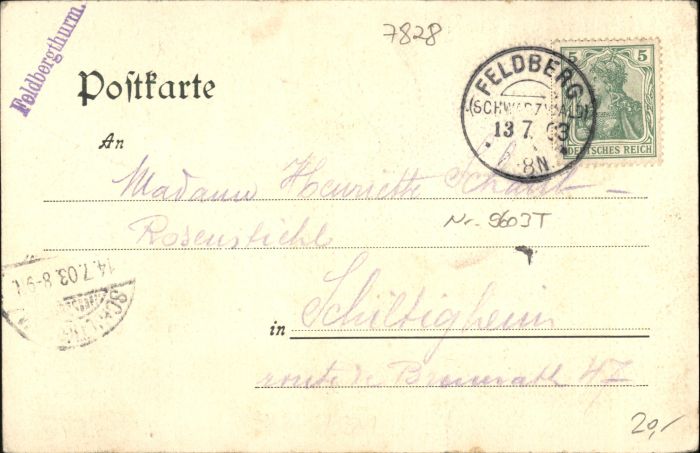 Feldbergthurm.
7828
Postkarte
FELDBERG
(SCHWARZWALD)
13 7. 03
8N.
5 5
DEUTSCHES REICH
An
Madame Henriette
Rosenstiehl
Nr. 9603T
14.7.03. 8-9
in Schiltigheim
route de Brumath 47
20,/